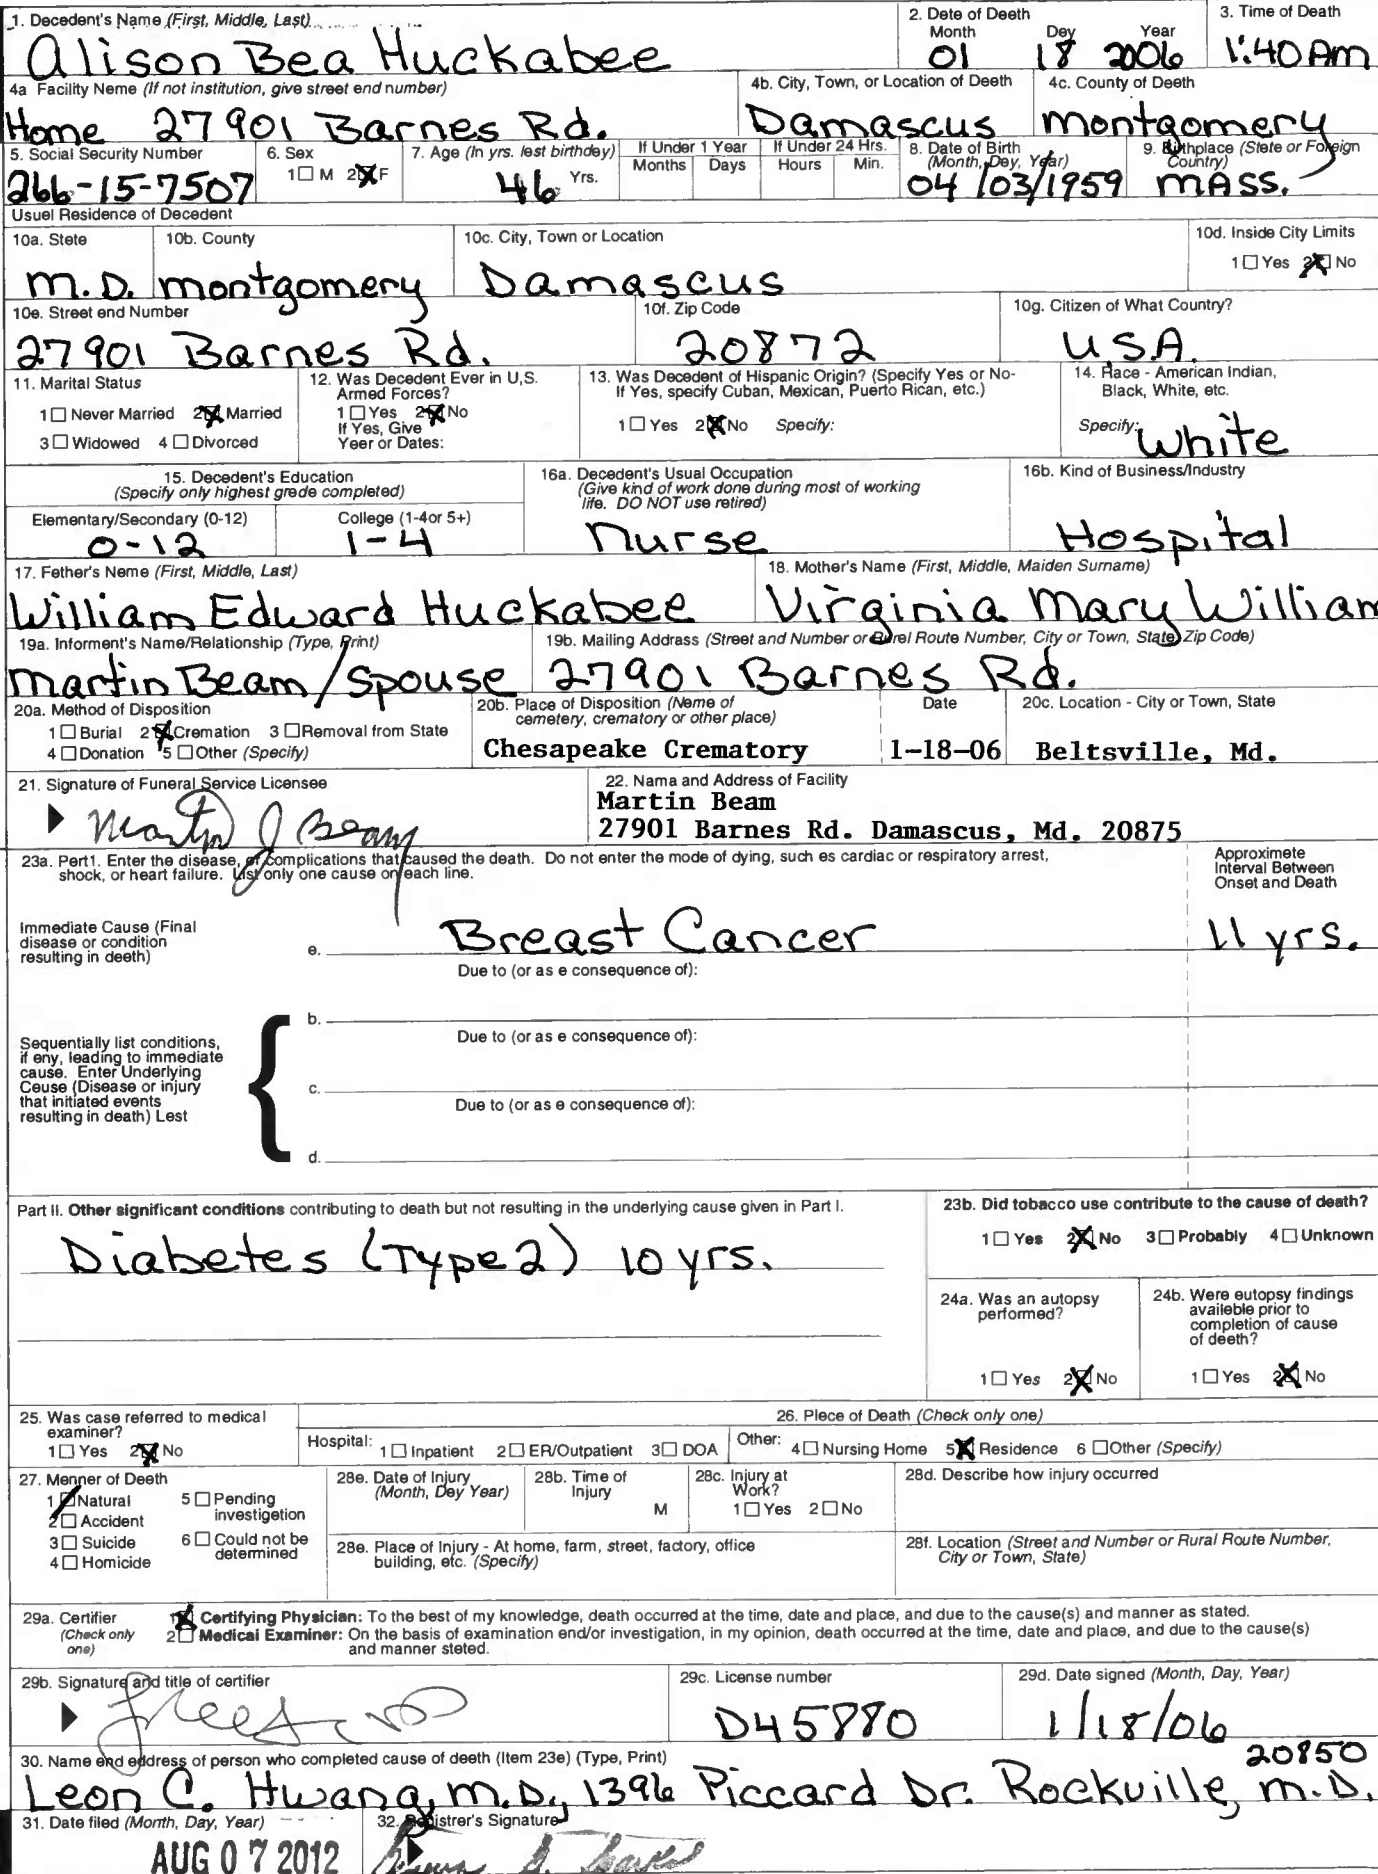 1. Decedent's Name (First, Middle, Last)
Alison Bea Huckabee
2. Date of Deeth
Month Dey Year
01 18 2006
3. Time of Death
1:40 Am
4a Facility Name (If not institution, give street end number)
Home 27901 Barnes Rd.
4b. City, Town, or Location of Deeth
Damascus
4c. County of Deeth
montgomery
5. Social Security Number
266-15-7507
6. Sex
1☐ M 2☒ F
7. Age (In yrs. lest birthdey)
46 Yrs.
If Under 1 Year
Months Days
If Under 24 Hrs.
Hours Min.
8. Date of Birth
(Month, Dey, Year)
04/03/1959
9. Birthplace (Stete or Foreign
Country)
MASS.
Usuel Residence of Decedent
10a. Stete
M.D.
10b. County
montgomery
10c. City, Town or Location
Damascus
10d. Inside City Limits
1☐ Yes 2☒ No
10e. Street end Number
27901 Barnes Rd.
10f. Zip Code
20872
10g. Citizen of What Country?
U.S.A.
11. Marital Status
1☐ Never Married 2☒ Married
3☐ Widowed 4☐ Divorced
12. Was Decedent Ever in U.S.
Armed Forces?
1☐ Yes 2☒ No
If Yes, Give
Yeer or Dates:
13. Was Decedent of Hispanic Origin? (Specify Yes or No-
If Yes, specify Cuban, Mexican, Puerto Rican, etc.)
1☐ Yes 2☒ No Specify:
14. Race - American Indian,
Black, White, etc.
Specify: White
15. Decedent's Education
(Specify only highest grede completed)
Elementary/Secondary (0-12)
0-12
College (1-4or 5+)
1-4
16a. Decedent's Usual Occupation
(Give kind of work done during most of working
life. DO NOT use retired)
Nurse
16b. Kind of Business/Industry
Hospital
17. Father's Neme (First, Middle, Last)
William Edward Huckabee
18. Mother's Name (First, Middle, Maiden Surname)
Virginia Mary William
19a. Informent's Name/Relationship (Type, Print)
Martin Beam/spouse
19b. Mailing Address (Street and Number or Rurel Route Number, City or Town, State, Zip Code)
27901 Barnes Rd.
20a. Method of Disposition
1☐ Burial 2☒ Cremation 3☐ Removal from State
4☐ Donation 5☐ Other (Specify)
20b. Place of Disposition (Neme of
cemetery, crematory or other place)
Chesapeake Crematory
Date
1-18-06
20c. Location - City or Town, State
Beltsville, Md.
21. Signature of Funeral Service Licensee
Martin J Beam
22. Name and Address of Facility
Martin Beam
27901 Barnes Rd. Damascus, Md. 20875
23a. Pert1. Enter the disease, or complications that caused the death. Do not enter the mode of dying, such es cardiac or respiratory arrest,
shock, or heart failure. List only one cause on each line.
Approximete
Interval Between
Onset and Death
Immediate Cause (Final
disease or condition
resulting in deeth)
e. Breast Cancer
11 yrs.
Due to (or as e consequence of):
b.
Due to (or as e consequence of):
Sequentially list conditions,
if eny, leading to immediate
cause. Enter Underlying
Ceuse (Disease or injury
that initiated events
resulting in death) Lest
c.
Due to (or as e consequence of):
d.
Part II. Other significant conditions contributing to death but not resulting in the underlying cause given in Part I.
Diabetes (Type 2) 10 yrs.
23b. Did tobacco use contribute to the cause of death?
1☐ Yes 2☒ No 3☐ Probably 4☐ Unknown
24a. Was an autopsy
performed?
1☐ Yes 2☒ No
24b. Were eutopsy findings
available prior to
completion of cause
of deeth?
1☐ Yes 2☒ No
25. Was case referred to medical
examiner?
1☐ Yes 2☒ No
26. Plece of Death (Check only one)
Hospital: 1☐ Inpatient 2☐ ER/Outpatient 3☐ DOA Other: 4☐ Nursing Home 5☒ Residence 6☐ Other (Specify)
27. Menner of Deeth
1☒ Natural 5☐ Pending
investigetion
2☐ Accident
3☐ Suicide 6☐ Could not be
determined
4☐ Homicide
28e. Date of Injury
(Month, Dey Year)
28b. Time of
Injury
M
28c. Injury at
Work?
1☐ Yes 2☐ No
28d. Describe how injury occurred
28e. Place of Injury - At home, farm, street, factory, office
building, etc. (Specify)
28f. Location (Street and Number or Rural Route Number,
City or Town, State)
29a. Certifier
(Check only
one)
1☒ Certifying Physician: To the best of my knowledge, death occurred at the time, date and place, and due to the cause(s) and manner as stated.
2☐ Medical Examiner: On the basis of examination end/or investigation, in my opinion, death occurred at the time, date and place, and due to the cause(s)
and manner steted.
29b. Signature and title of certifier
29c. License number
D45880
29d. Date signed (Month, Day, Year)
1/18/06
30. Name end eddress of person who completed cause of deeth (Item 23e) (Type, Print)
20850
Leon C. Hwang, M.D., 1396 Piccard Dr. Rockville, M.D.
31. Date filed (Month, Day, Year)
AUG 07 2012
32. Registrer's Signature